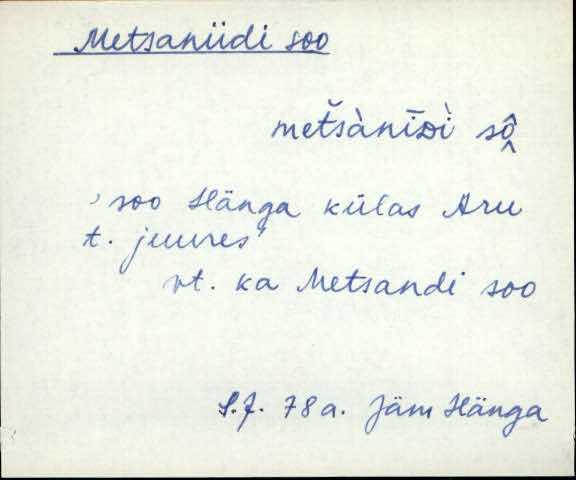 Metsaniidi soo
met̆sànīᴅì sô̭
, soo Hänga külas Aru
t. juures"
vt. ka Metsandi soo
S.J. 78 a. Jäm Hänga